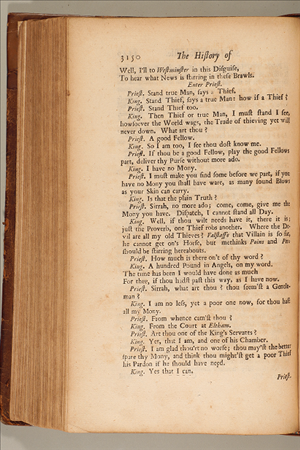 3150 The History of
Well, I'll to Westminster in this Disguise,
To hear what News is stirring in these Brawls.
Enter Priest.
Priest. Stand true Man, says a Thief.
King. Stand Thief, says a true Man: how if a Thief?
Priest. Stand Thief too.
King. Then Thief or true Man, I must stand I see,
howsoever the World wags, the Trade of thieving yet will
never down. What art thou?
Priest. A good Fellow.
King. So I am too, I see thou dost know me.
Priest. If thou be a good Fellow, play the good Fellows
part, deliver thy Purse without more ado.
King. I have no Mony.
Priest. I must make you find some before we part, if you
have no Mony you shall have ware, as many sound Blows
as your Skin can carry.
King. Is that the plain Truth?
Priest. Sirrah, no more ado; come, come, give me the
Mony you have. Dispatch, I cannot stand all Day.
King. Well, if thou wilt needs have it, there it is;
just the Proverb, one Thief robs another. Where the De-
vil are all my old Thieves? Falstaff that Villain is so fat,
he cannot get on's Horse, but methinks Poins and Peto
should be stirring hereabouts.
Priest. How much is there on't of thy word?
King. A hundred Pound in Angels, on my word.
The time has been I would have done as much
For thee, if thou hadst past this way, as I have now.
Priest. Sirrah, what art thou? thou seem'st a Gentle-
man?
King. I am no less, yet a poor one now, for thou hast
all my Mony.
Priest. From whence cam'st thou?
King. From the Court at Eltham.
Priest. Art thou one of the King's Servants?
King. Yes, that I am, and one of his Chamber.
Priest. I am glad thou'rt no worse; thou may'st the better
spare thy Mony, and think thou might'st get a poor Thief
his Pardon if he should have need.
King. Yes that I can.
Priest.